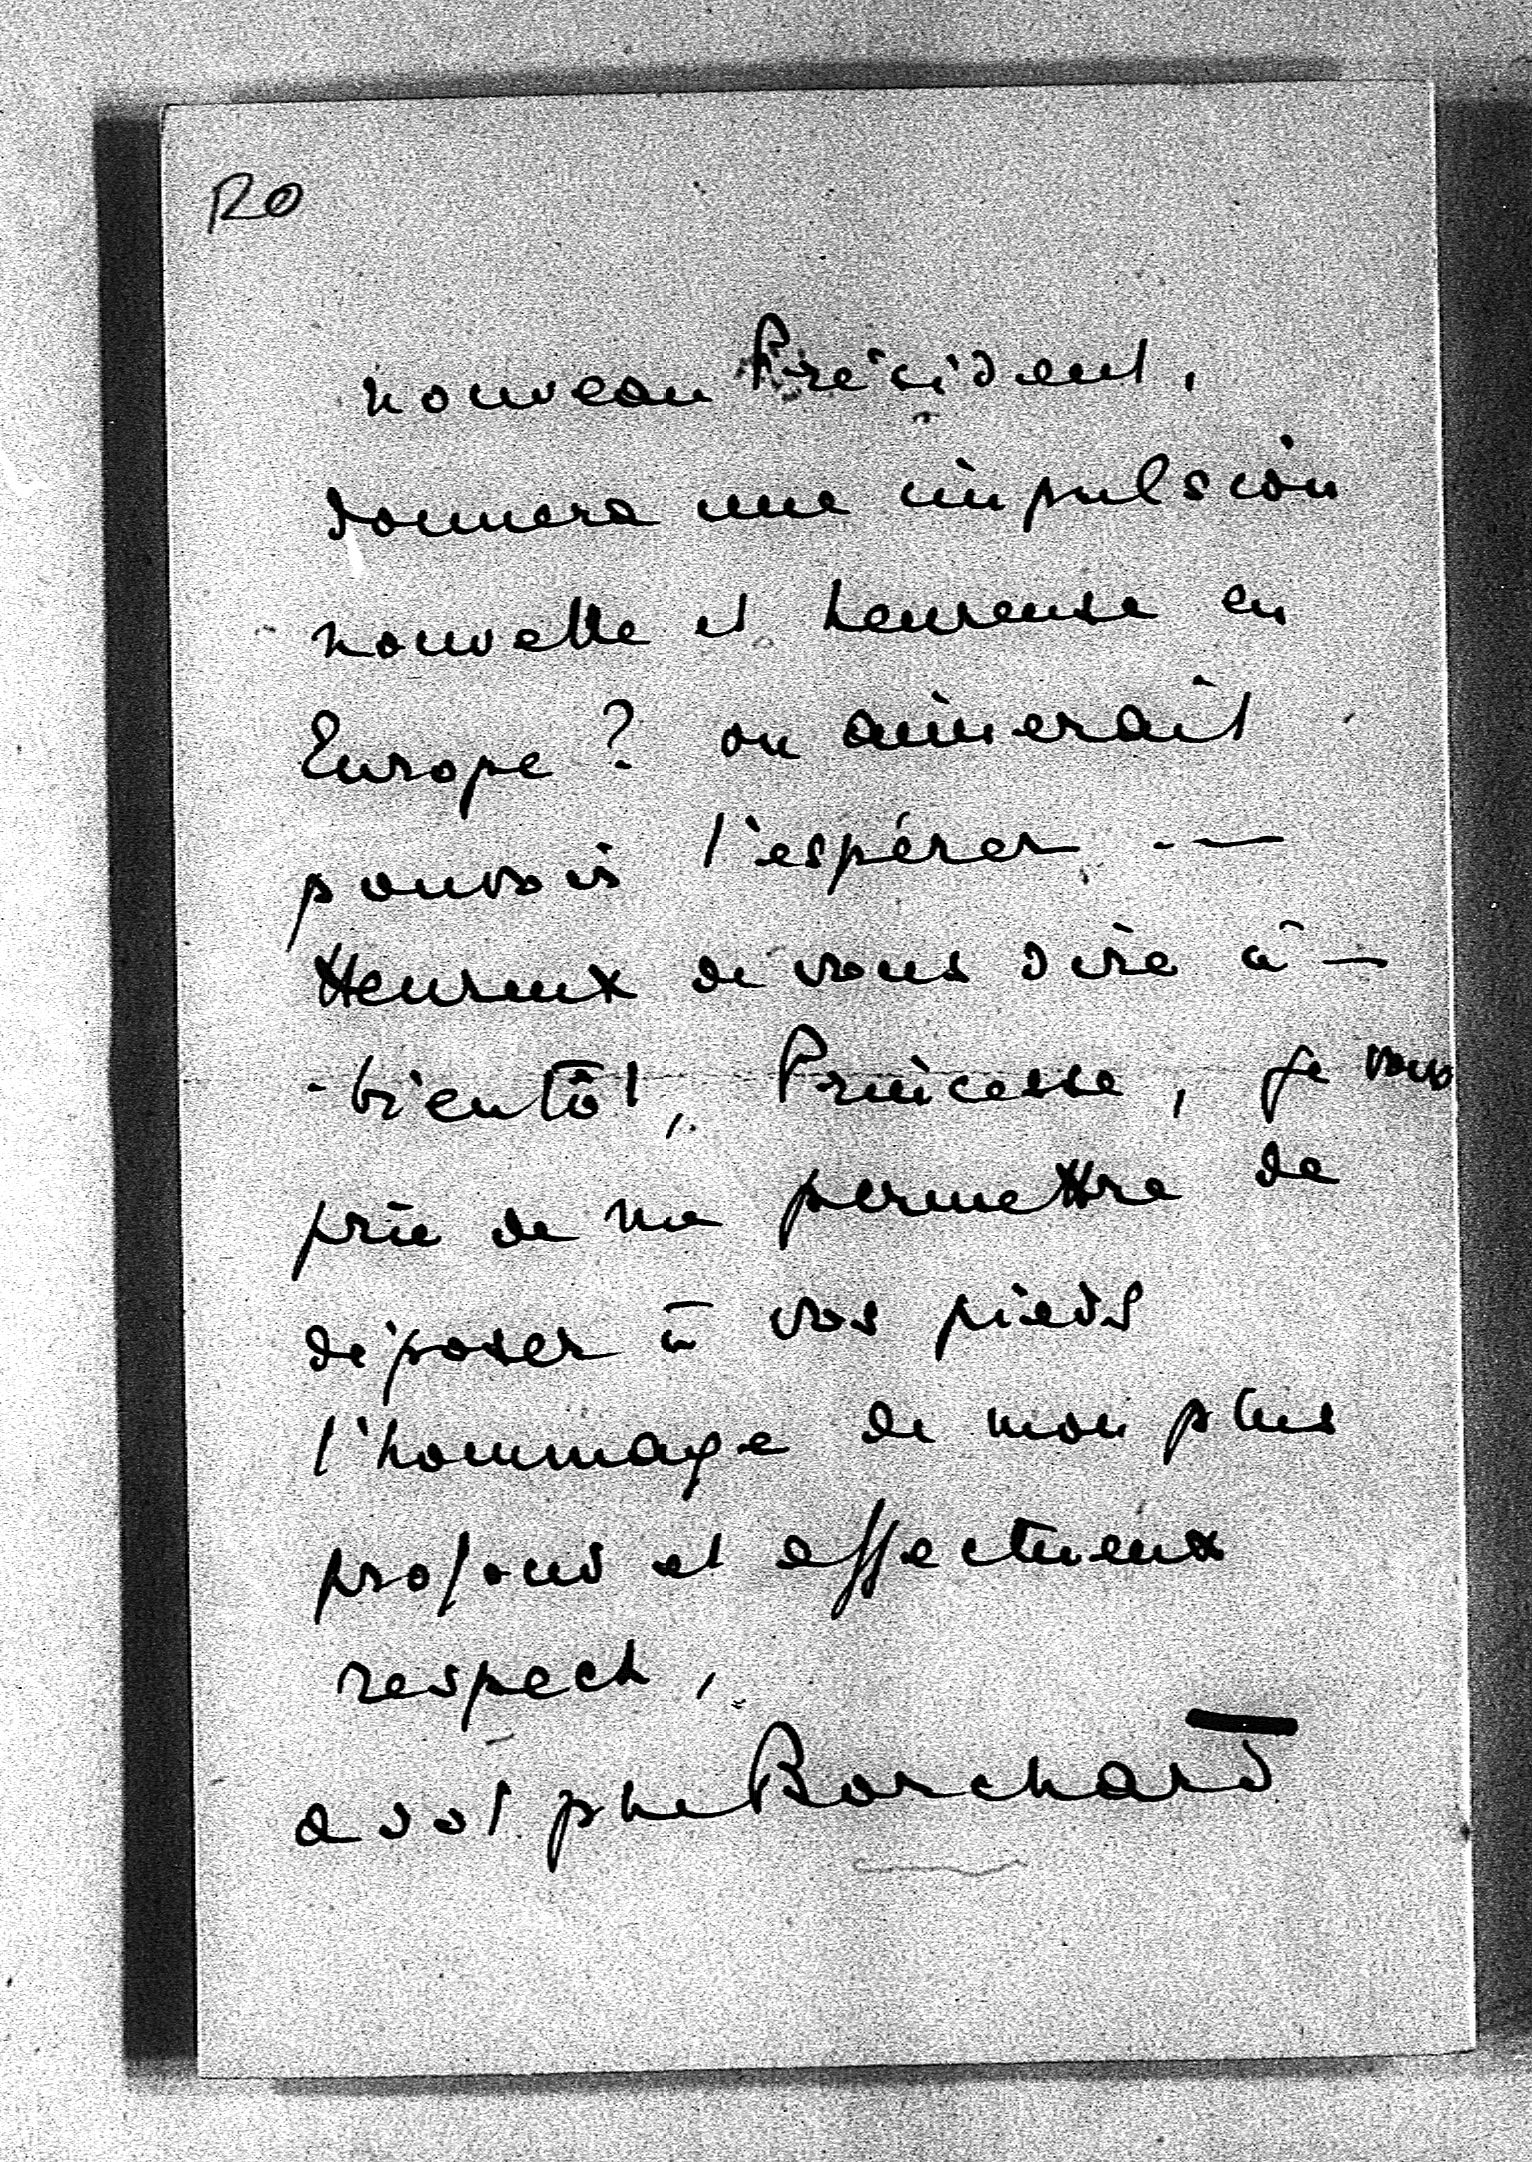 RO
nouveau Président,
donnera une impulsion
nouvelle et heureuse en
Europe ? on aimerait
pouvoir l'espérer. —
Heureux de vous dire à —
- bientôt, Princesse, je vous
prie de me permettre de
déposer à vos pieds
l'hommage de mon plus
profond et affectueux
respect,
adolphe Borchard